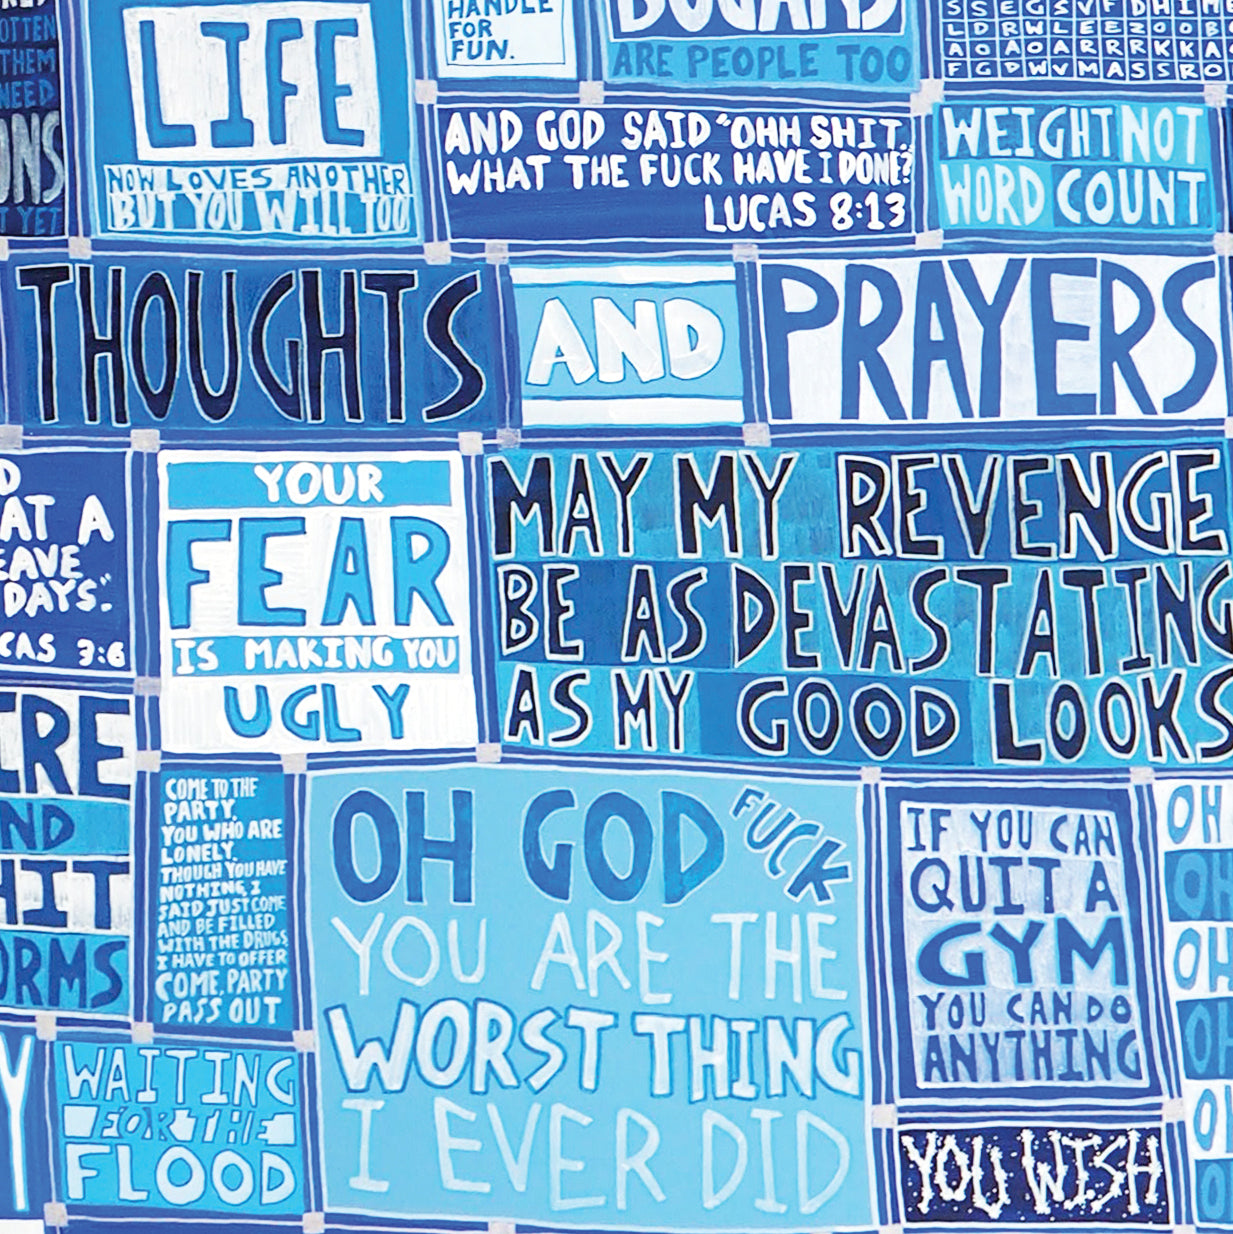 OTTEN
THEM
NEED
ONS
T YET
LIFE
NOW LOVES ANOTHER
BUT YOU WILL TOO
HANDLE
FOR
FUN.
BOGANS
ARE PEOPLE TOO
L D R W L E Z O O B
A O A O A R R K K A
F G D W V M A S S R O
AND GOD SAID "OHH SHIT.
WHAT THE FUCK HAVE I DONE?
LUCAS 8:13
WEIGHT NOT
WORD COUNT
THOUGHTS
AND
PRAYERS
D
AT A
EAVE
DAYS".
CAS 3:6
YOUR
FEAR
IS MAKING YOU
UGLY
MAY MY REVENGE
BE AS DEVASTATING
AS MY GOOD LOOKS
RE
ND
HIT
ORMS
COME TO THE
PARTY.
YOU WHO ARE
LONELY.
THOUGH YOU HAVE
NOTHING, I
SAID JUST COME
AND BE FILLED
WITH THE DRUGS
I HAVE TO OFFER
COME. PARTY
PASS OUT
OH GOD FUCK
YOU ARE THE
WORST THING
I EVER DID
IF YOU CAN
QUIT A
GYM
YOU CAN DO
ANYTHING
YOU WISH
OH
OH
OH
OH
O
O
Y
WAITING
FOR THE
FLOOD